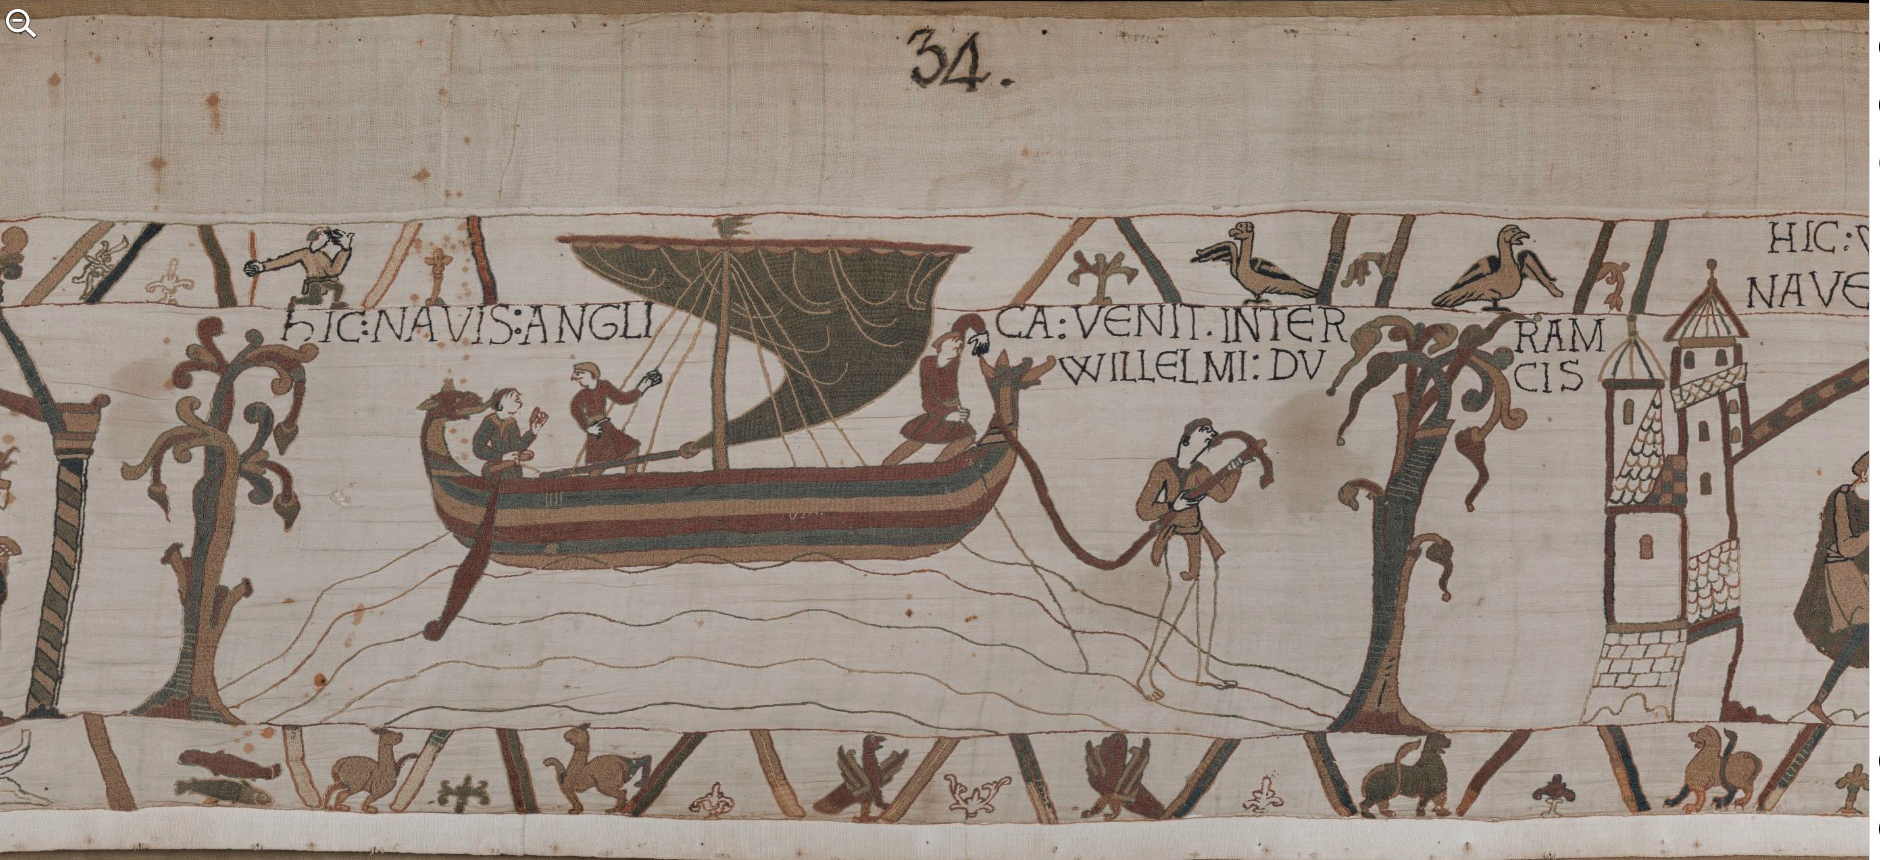 34.
HIC:NAVIS:ANGLI
CA:VENIT.INTER
RAM
WILLELMI:DV
CIS
HIC:
NAVE